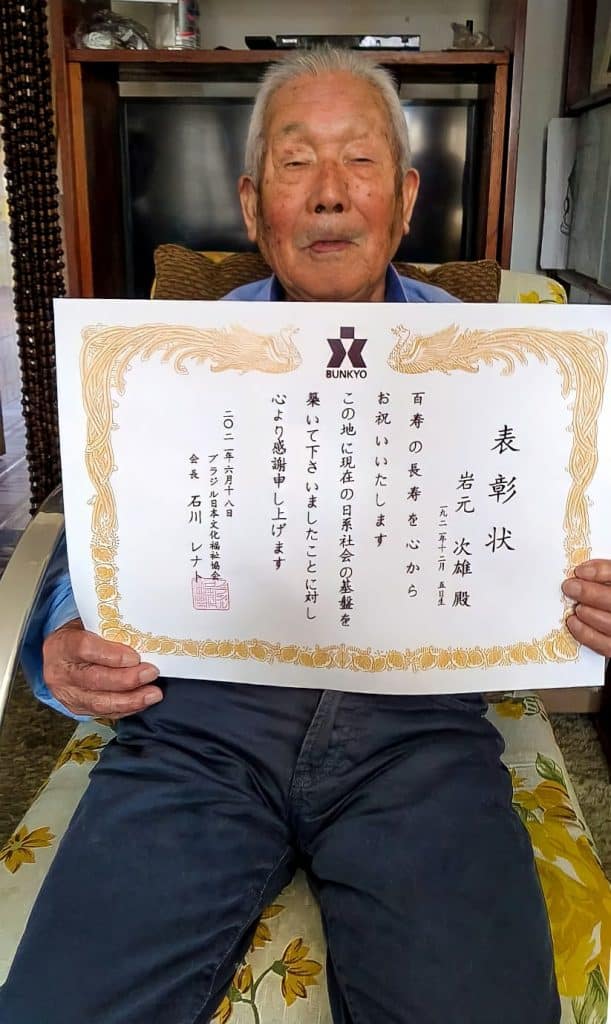 BUNKYO
表彰状
岩元 次雄 殿
一九二一年十二月 五日生
百寿の長寿を心から
お祝いいたします
この地に現在の日系社会の基盤を
築いて下さいましたことに対し
心より感謝申し上げます
二〇二一年六月十八日
ブラジル日本文化福祉協会
会長 石川 レナト